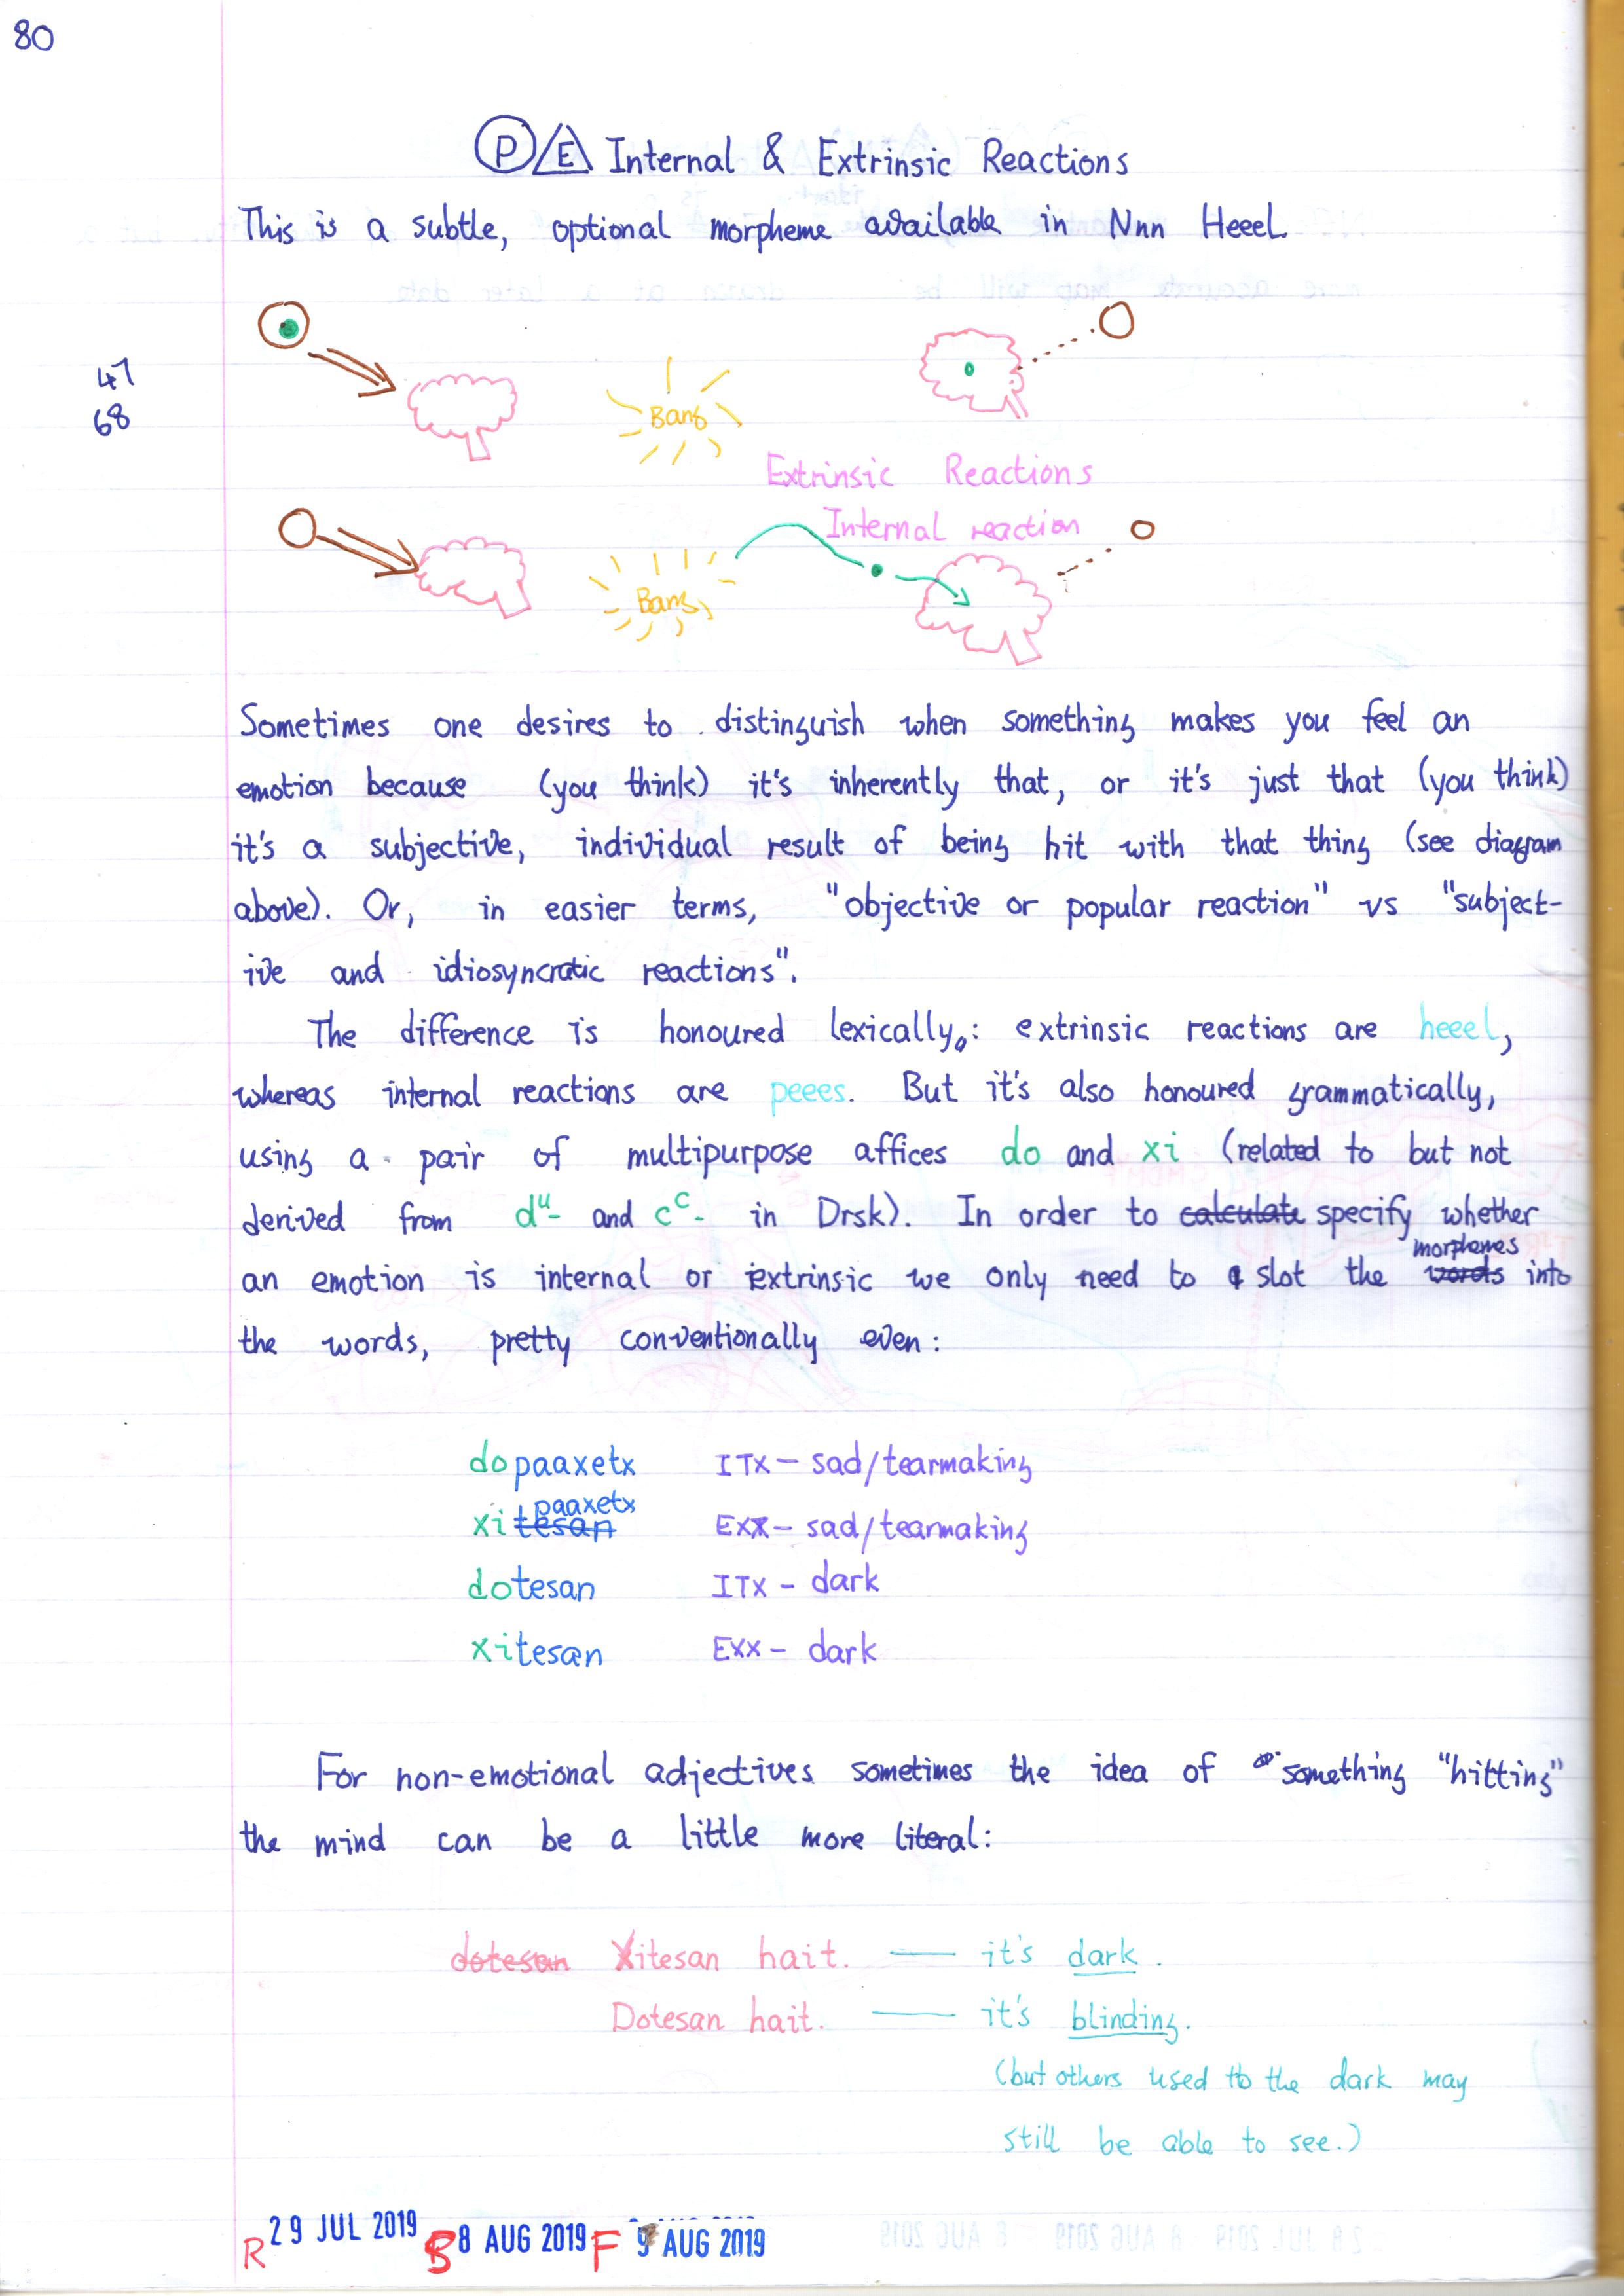 80
P E Internal & Extrinsic Reactions
This is a subtle, optional morpheme available in Nnn Heeel.
47
68
Bang
Extrinsic Reactions
Internal reaction
Bang
Sometimes one desires to distinguish when something makes you feel an
emotion because (you think) it's inherently that, or it's just that (you think)
it's a subjective, individual result of being hit with that thing (see diagram
above). Or, in easier terms, "objective or popular reaction" vs "subject-
ive and idiosyncratic reactions".
The difference is honoured lexically: extrinsic reactions are heeel,
whereas internal reactions are peees. But it's also honoured grammatically,
using a pair of multipurpose affices do and xi (related to but not
derived from dᵘ- and cᶜ- in Drsk). In order to calculate specify whether
an emotion is internal or extrinsic we only need to slot the words morphemes into
the words, pretty conventionally even:
dopaaxetx ITX - sad/tearmaking
xitesan paaxetx EXX - sad/tearmaking
dotesan ITX - dark
xitesan EXX - dark
For non-emotional adjectives sometimes the idea of something "hitting"
the mind can be a little more literal:
dotesan Xitesan hait. — it's dark.
Dotesan hait. — it's blinding.
(but others used to the dark may
still be able to see.)
R 29 JUL 2019 S 8 AUG 2019 F 9 AUG 2019